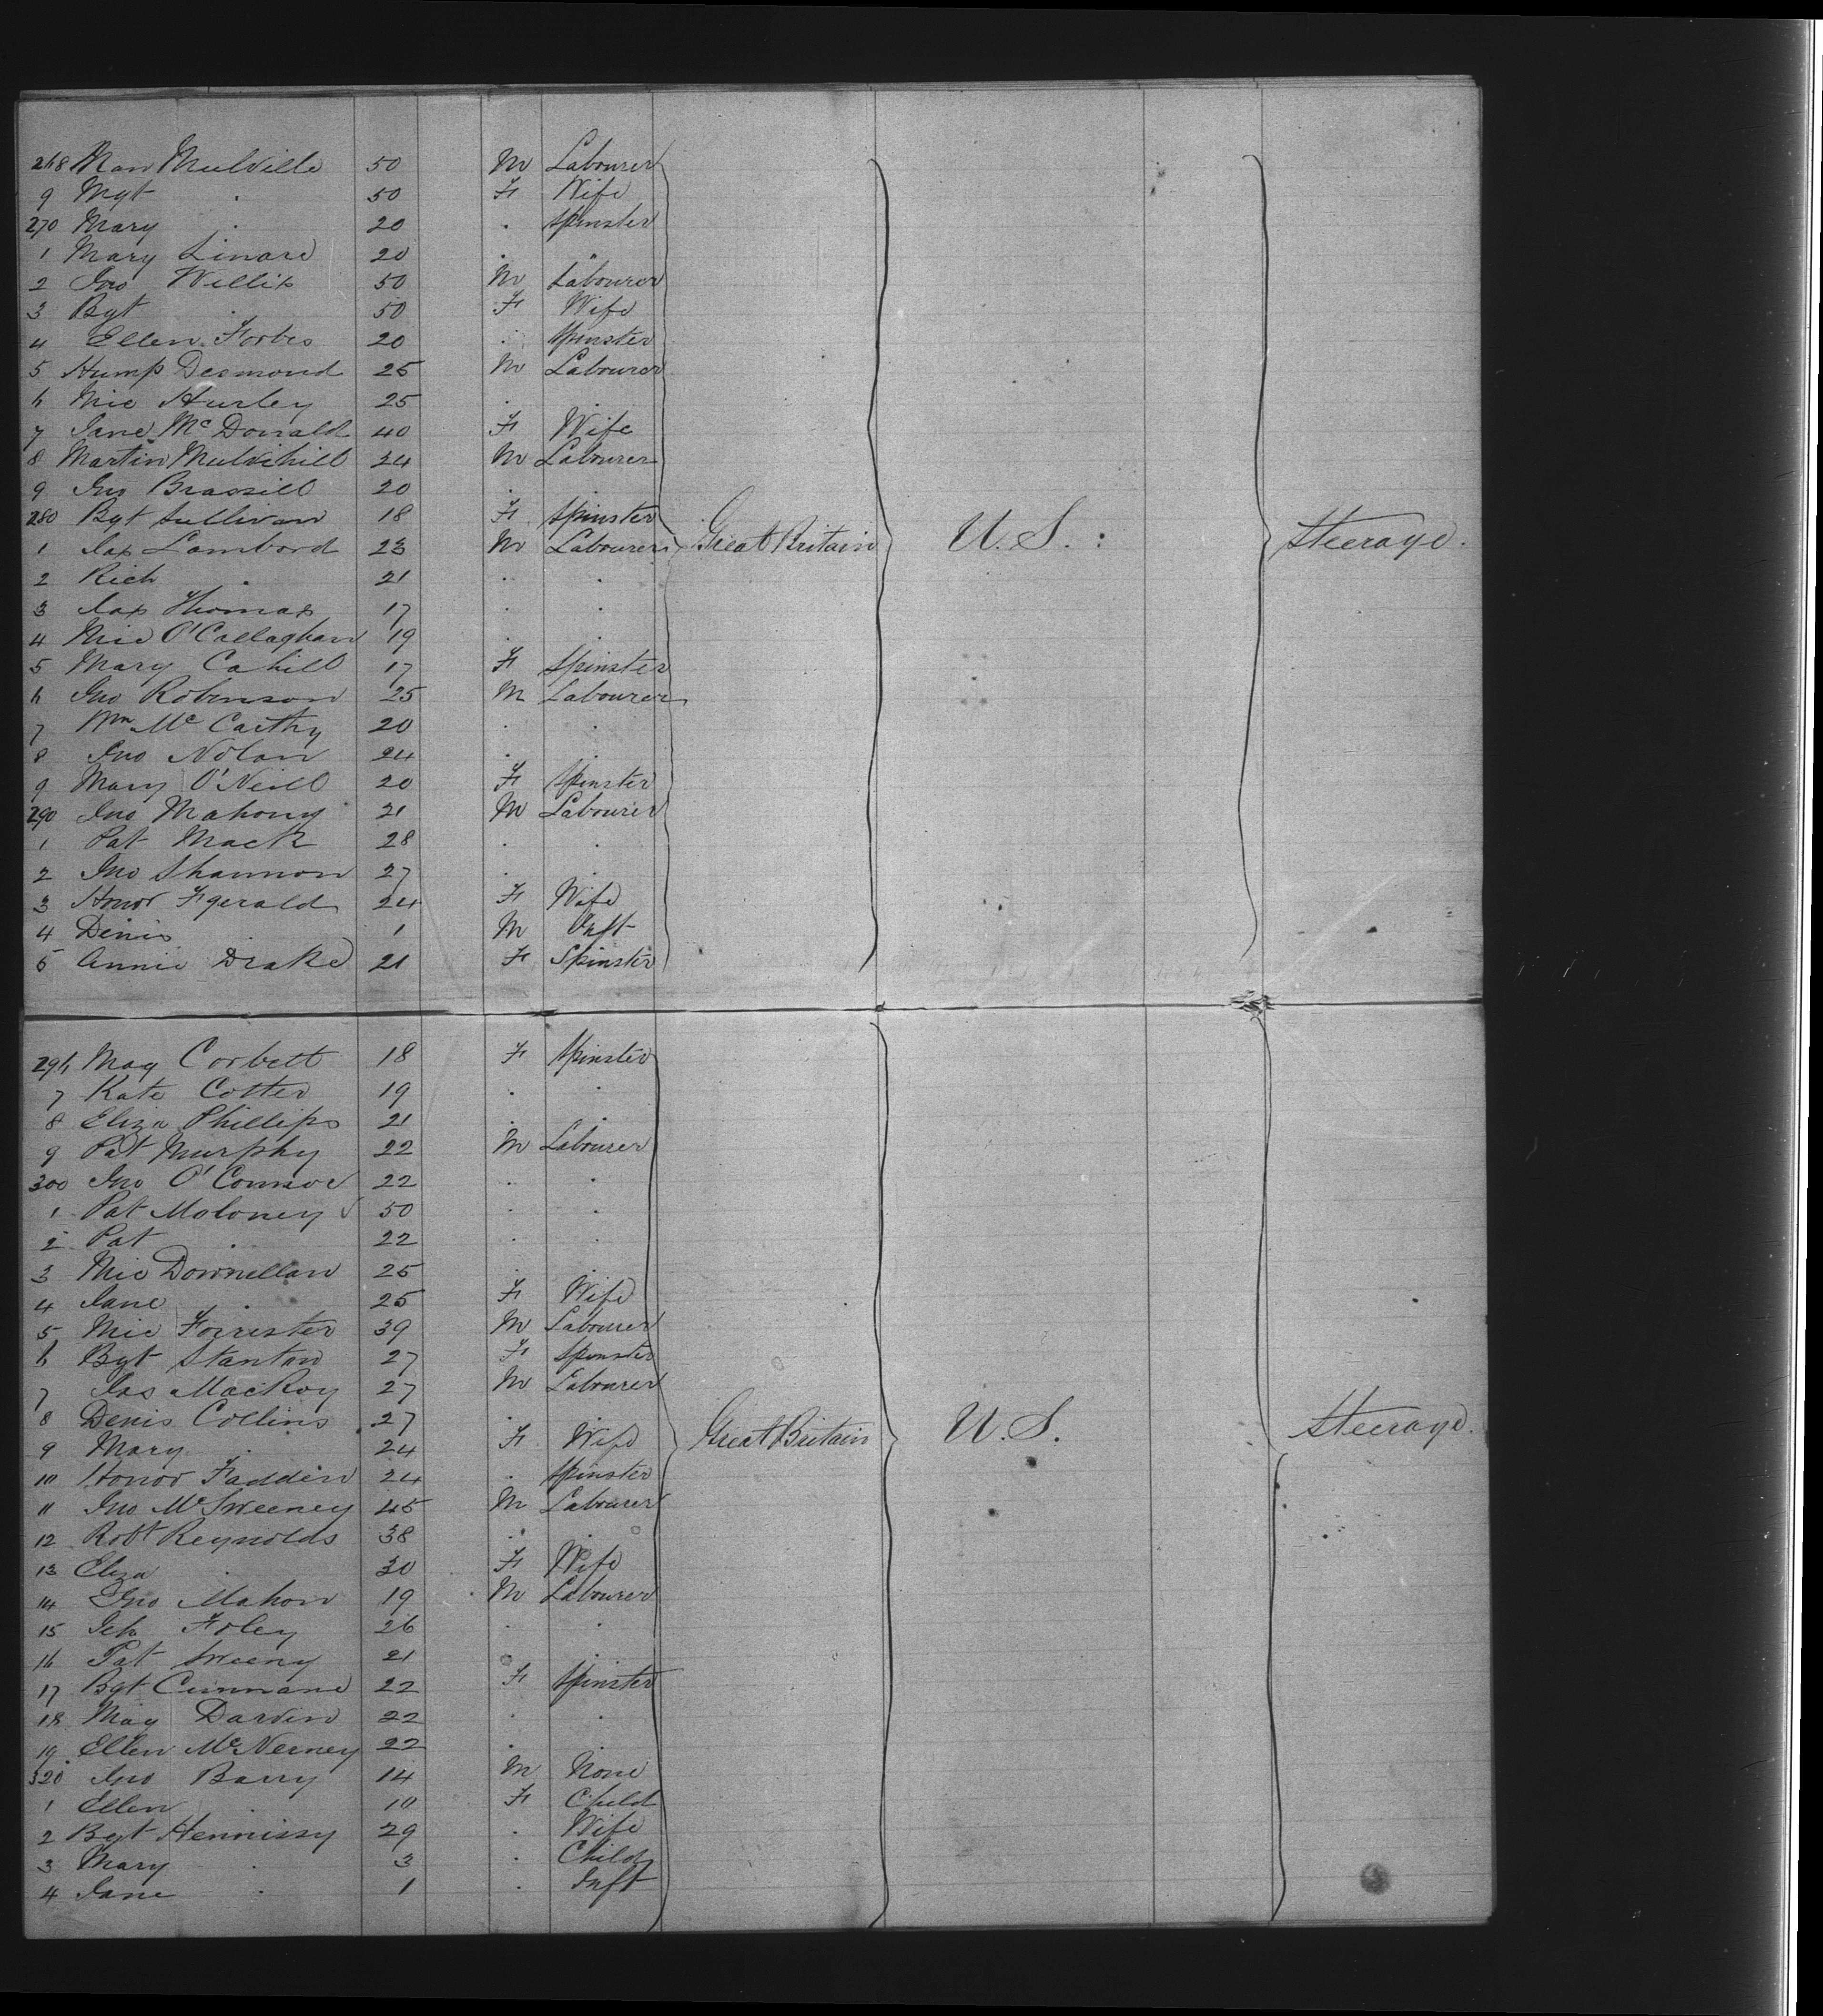 268 Mulville 50 M Labourer
9 Mgt . 50 F Wife
270 Mary . 20 . Spinster
1 Mary Linard 20 . "
2 Jno Willis 50 M Labourer
3 Bgt . 50 F Wife
4 Ellen Forbes 20 . Spinster
5 Hump Desmond 25 M Labourer
6 Mic Hurley 25 . .
7 Jane McDonald 40 F Wife
8 Martin Mulvihill 24 M Labourer
9 Jno Brassill 20 . .
280 Bgt Sullivan 18 F Spinster
1 Jas Lombard 23 M Labourer Great Britain U.S. : Steerage.
2 Rich . 21 . .
3 Jas Thomas 17 . .
4 Mic O'Callaghan 19 . .
5 Mary Cahill 17 F Spinster
6 Jno Robinson 25 M Labourer
7 Wm McCarthy 20 . .
8 Jno Nolan 24 . .
9 Mary O'Neill 20 F Spinster
290 Jno Mahony 21 M Labourer
1 Pat Mack 28 . .
2 Jno Shannon 27 . .
3 Honor Fgerald 24 F Wife
4 Denis . 1 M Inft
5 Annie Drake 21 F Spinster
296 May Corbett 18 F Spinster
7 Kate Cotter 19 . .
8 Eliza Phillips 21 . .
9 Pat Murphy 22 M Labourer
300 Jno O'Connor 22 . .
1 Pat Moloney 50 . .
2 Pat . 22 . .
3 Mic Downellan 25 . .
4 Jane . 25 F Wife
5 Mic Forrester 39 M Labourer
6 Bgt Stanton 27 F Spinster
7 Jas MacKoy 27 M Labourer
8 Denis Collins 27 .
9 Mary . 24 F Wife Great Britain U.S. Steerage.
10 Honor Fadden 24 . Spinster
11 Jno McSweeney 45 M Labourer
12 Robt Reynolds 38 . .
13 Eliza . 30 F Wife
14 Jno Mahon 19 M Labourer
15 Foley 26 . .
16 Pat Sweeny 21 . .
17 Bgt Cunnane 22 F Spinster
18 May Darvin 22 . .
19 Ellen McNerney 22 . .
320 Jno Barry 14 M None
1 Ellen . 10 F Child
2 Bgt Hennissy 29 . Wife
3 Mary . 3 . Child
4 Jane . 1 . Inft